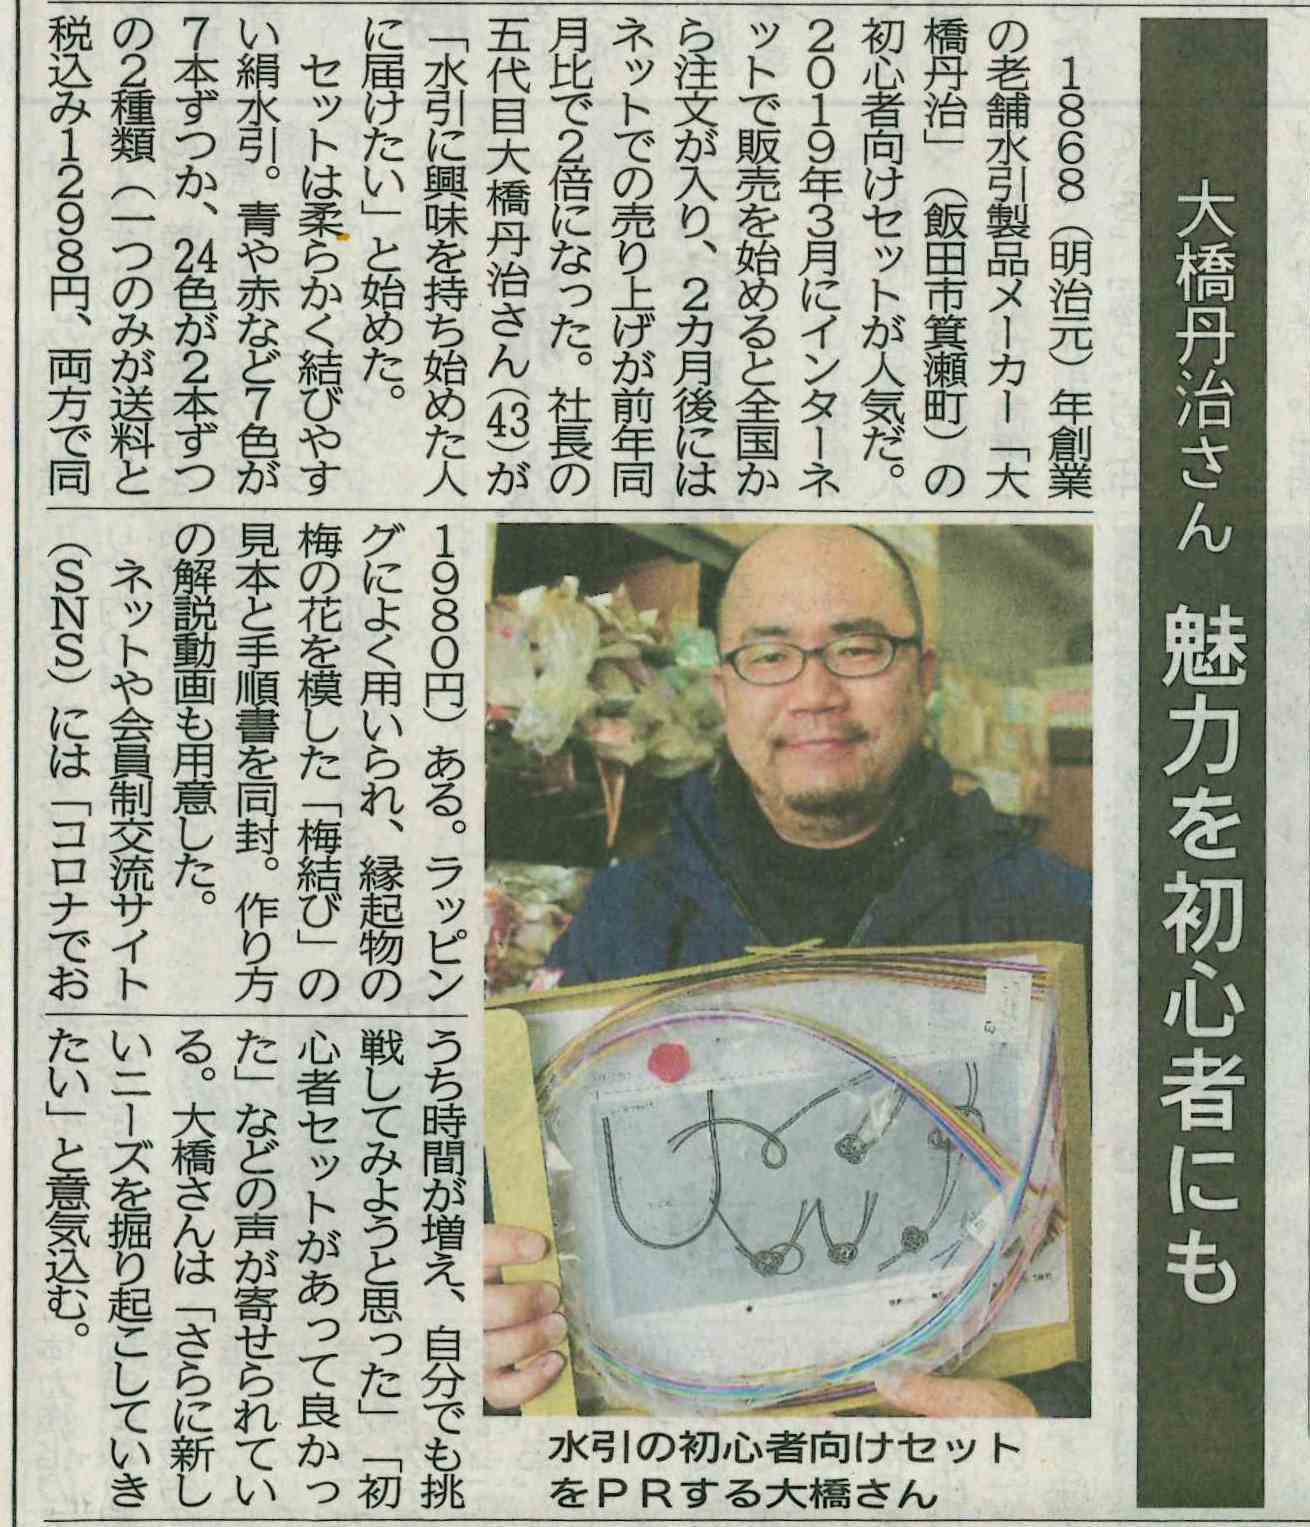 大橋丹治さん 魅力を初心者にも
１８６８（明治元）年創業
の老舗水引製品メーカー「大
橋丹治」（飯田市箕瀬町）の
初心者向けセットが人気だ。
２０１９年３月にインターネ
ットで販売を始めると全国か
ら注文が入り、２カ月後には
ネットでの売り上げが前年同
月比で２倍になった。社長の
五代目大橋丹治さん（43）が
「水引に興味を持ち始めた人
に届けたい」と始めた。
セットは柔らかく結びやす
い絹水引。青や赤など７色が
７本ずつか、24色が２本ずつ
の２種類（一つのみが送料と
税込み１２９８円、両方で同
１９８０円）ある。ラッピン
グによく用いられ、縁起物の
梅の花を模した「梅結び」の
見本と手順書を同封。作り方
の解説動画も用意した。
ネットや会員制交流サイト
（ＳＮＳ）には「コロナでお
うち時間が増え、自分でも挑
戦してみようと思った」「初
心者セットがあって良かっ
た」などの声が寄せられてい
る。大橋さんは「さらに新し
いニーズを掘り起こしていき
たい」と意気込む。
水引の初心者向けセット
をＰＲする大橋さん